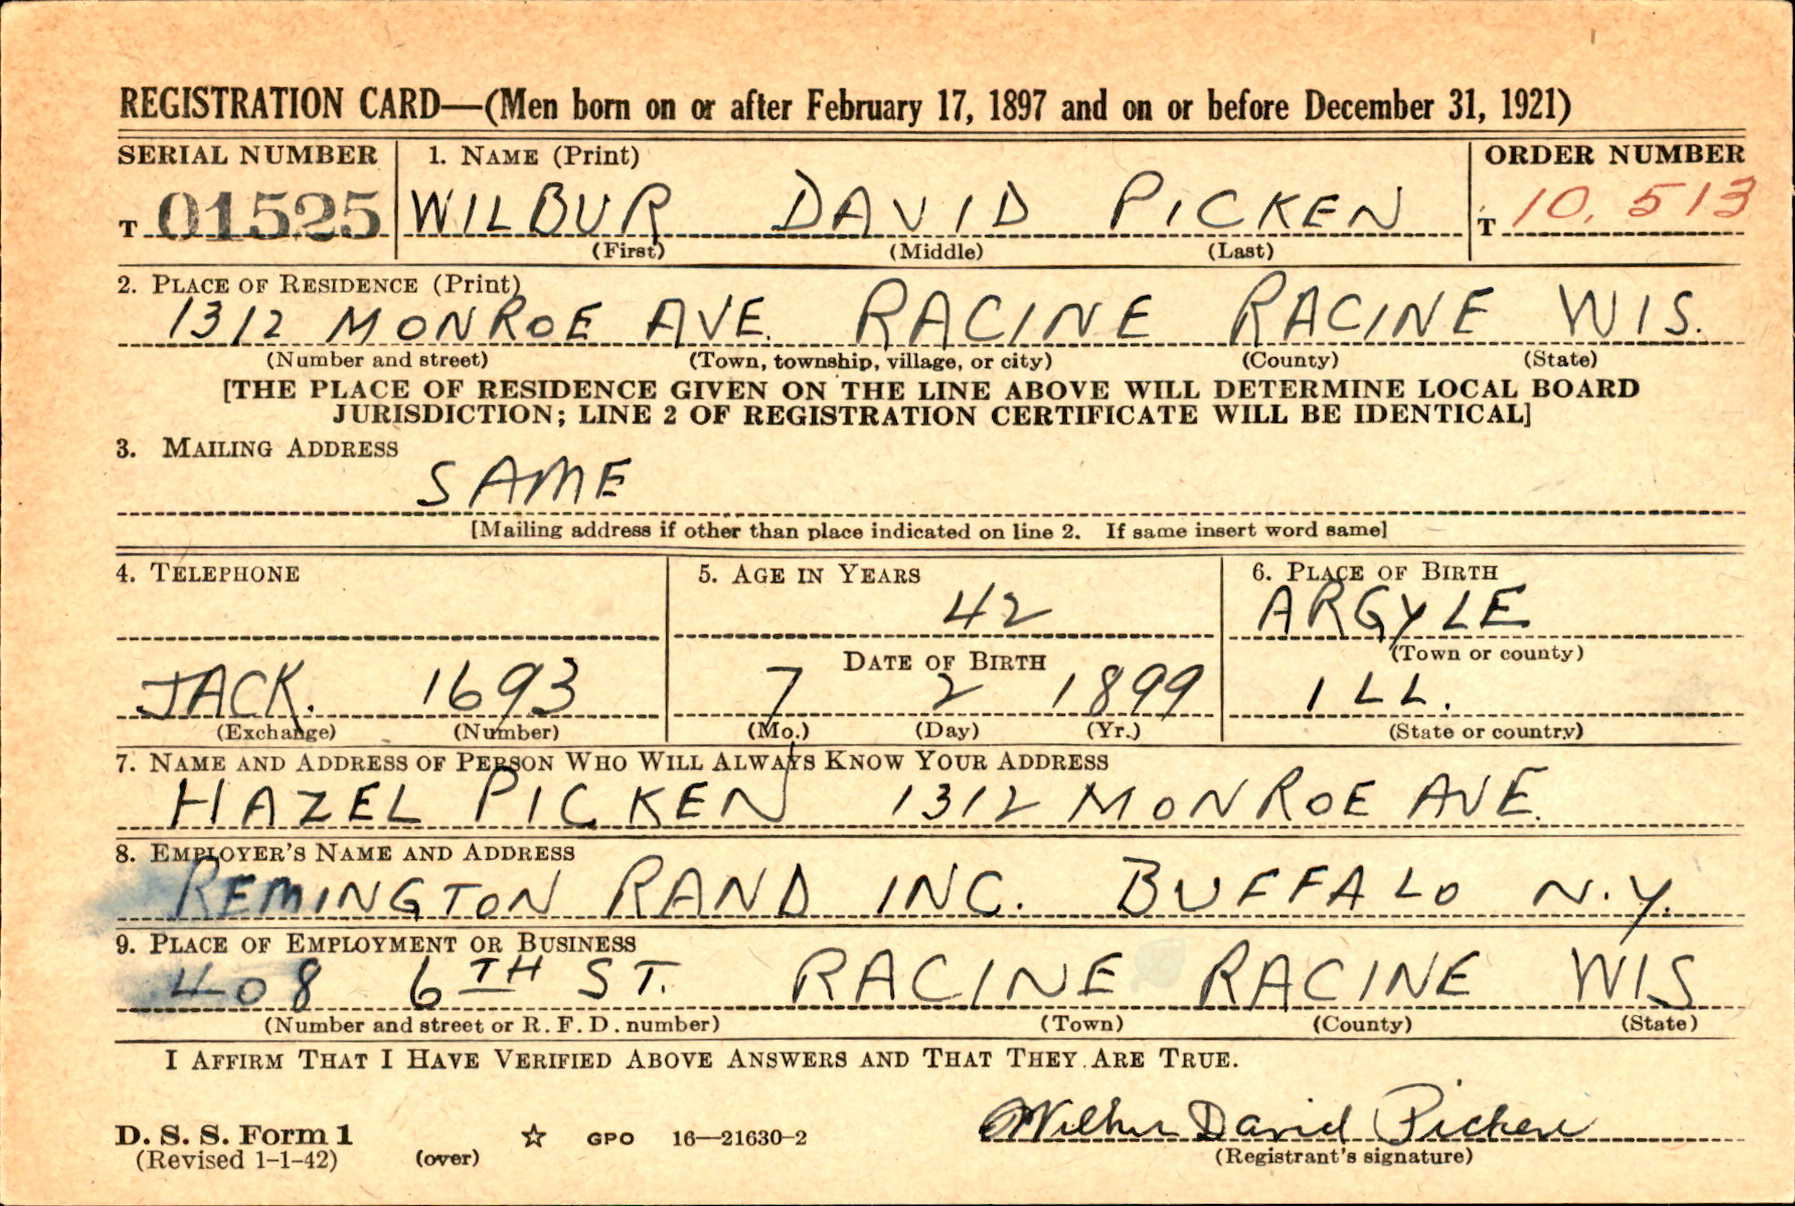 REGISTRATION CARD—(Men born on or after February 17, 1897 and on or before December 31, 1921)
SERIAL NUMBER 1. NAME (Print) ORDER NUMBER
T 01525 WILBUR DAVID PICKEN T 10,513
(First) (Middle) (Last)
2. PLACE OF RESIDENCE (Print)
1312 MONROE AVE. RACINE RACINE WIS.
(Number and street) (Town, township, village, or city) (County) (State)
[THE PLACE OF RESIDENCE GIVEN ON THE LINE ABOVE WILL DETERMINE LOCAL BOARD
JURISDICTION; LINE 2 OF REGISTRATION CERTIFICATE WILL BE IDENTICAL]
3. MAILING ADDRESS
SAME
[Mailing address if other than place indicated on line 2. If same insert word same]
4. TELEPHONE 5. AGE IN YEARS 6. PLACE OF BIRTH
42 ARGYLE
DATE OF BIRTH (Town or county)
JACK. 1693 7 2 1899 ILL.
(Exchange) (Number) (Mo.) (Day) (Yr.) (State or country)
7. NAME AND ADDRESS OF PERSON WHO WILL ALWAYS KNOW YOUR ADDRESS
HAZEL PICKEN 1312 MONROE AVE.
8. EMPLOYER'S NAME AND ADDRESS
REMINGTON RAND INC. BUFFALO N.Y.
9. PLACE OF EMPLOYMENT OR BUSINESS
408 6TH ST. RACINE RACINE WIS
(Number and street or R. F. D. number) (Town) (County) (State)
I AFFIRM THAT I HAVE VERIFIED ABOVE ANSWERS AND THAT THEY ARE TRUE.
Wilbur David Picken
D. S. S. Form 1 ☆ GPO 16—21630-2
(Revised 1-1-42) (over) (Registrant's signature)